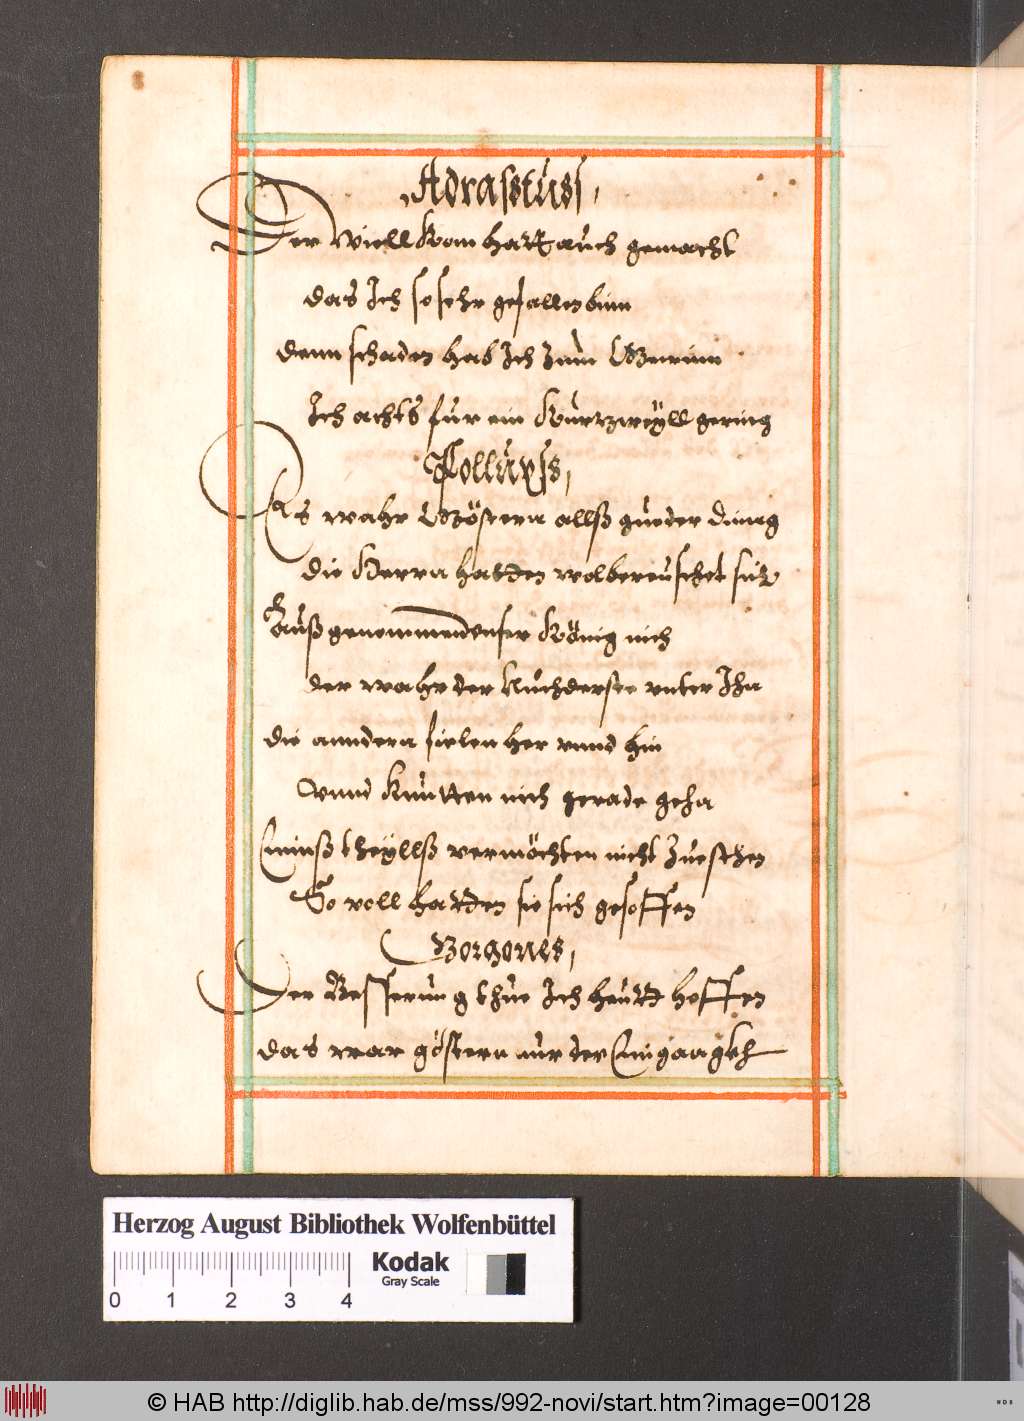 Adrasstuss,
Der Viell Rom hatt auch gemacht
das Ich so sehr gefallen binn
denn schaden hab Ich Zum Gewinn
Ich achts fur ein Kurtzweÿll gering
Polluxss,
Es wahr Göstern allß gueder Dinng
die Herrn hatten wol bereuschet sich
Auß genommen Vnser König nich
der wahr der Nuchderste vnter Ihn
die anndern fielen her vnnd hin
Vnnd Kuntten nich gerade gehn
Einß theÿllß vermöchten nicht Zu esthen
So voll hatten sie sich gesoffen
Gorgones,
Der Besserung thue Ich heutt hoffen
das war göstern nur der Eingangkh
Herzog August Bibliothek Wolfenbüttel
Kodak
Gray Scale
0 1 2 3 4
© HAB http://diglib.hab.de/mss/992-novi/start.htm?image=00128